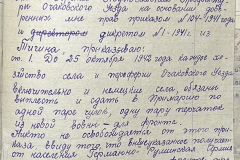 рю Очаковского Уезда на основании дове-
ренных мне прав приказом №104-1941 года
и директором декретом №1-1941г из
Тигина, приказываю:
от. 1. До 25 октября 1942 года каждое хо-
зяйство села и территории Очаковского Уезда
включительно и немецкие села, обязано
выплесть и сдать в Примарию по
одной паре чулок, одну пару перчаток
из новой для фронта.
Никто не освобождается от этого при-
каза ввиду того, что вышеуказанное получают
от населения Германо-Румынская Армия